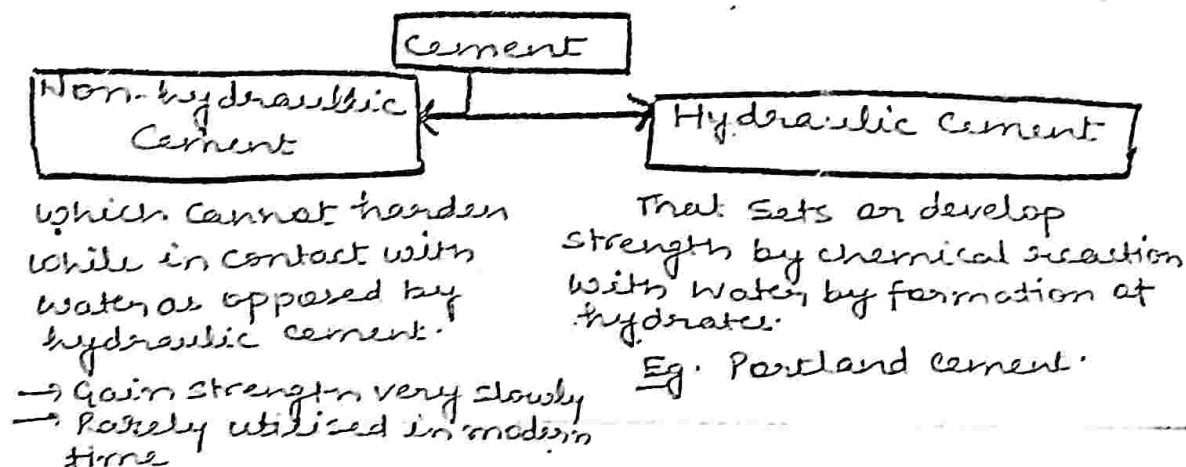 Cement
Non-hydraulic
Cement
Hydraulic Cement
which cannot harden
while in contact with
water as opposed by
hydraulic cement.
→ Gain strength very slowly
→ Rarely utilised in modern
time
That sets or develop
strength by chemical reaction
with water, by formation of
hydrates.
Eg. Portland cement.